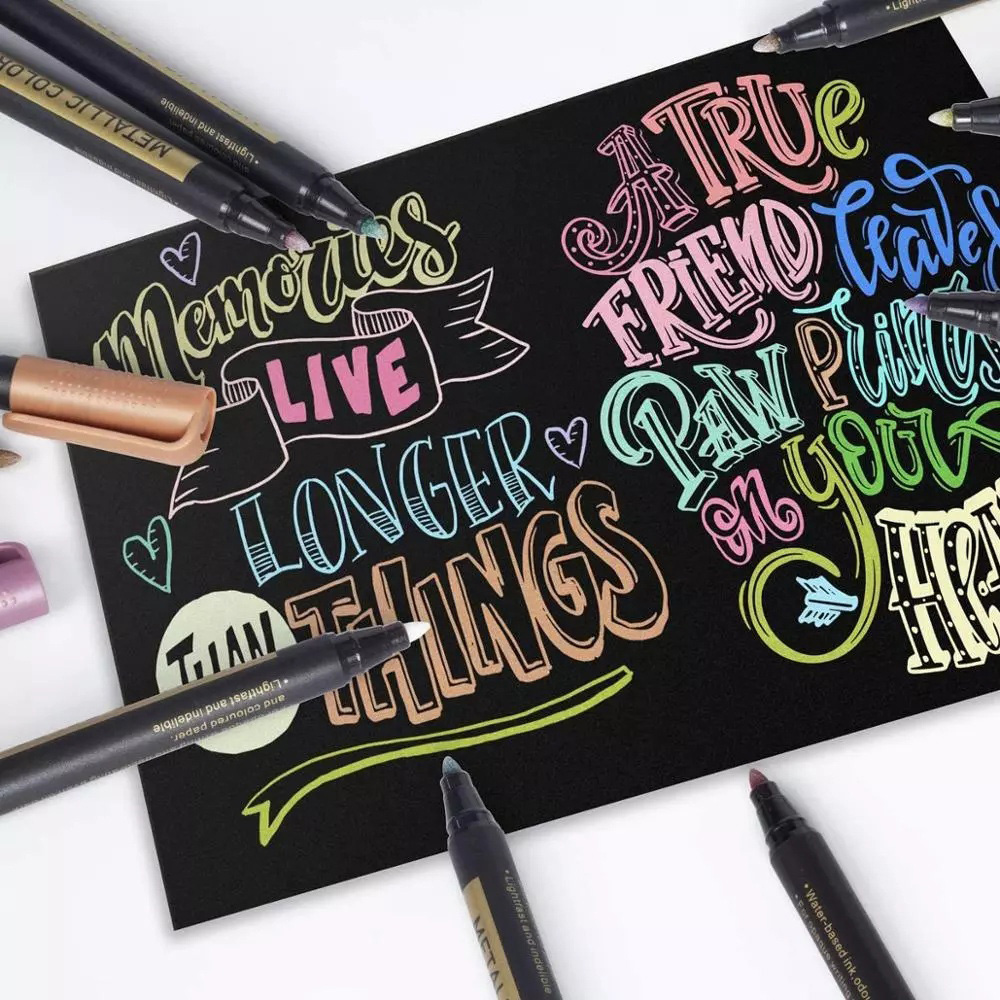 Memories
LIVE
LONGER
THAN
THINGS
A TRUe
FRIEND leaves
PAW prints
on your
METALLIC COLOR
and coloured paper.
• Lightfast and indelible
METALLIC
• Lightfast and indelible
and coloured paper.
• Lightfast and indelible
• Water-based ink, odo
• For opaque writing